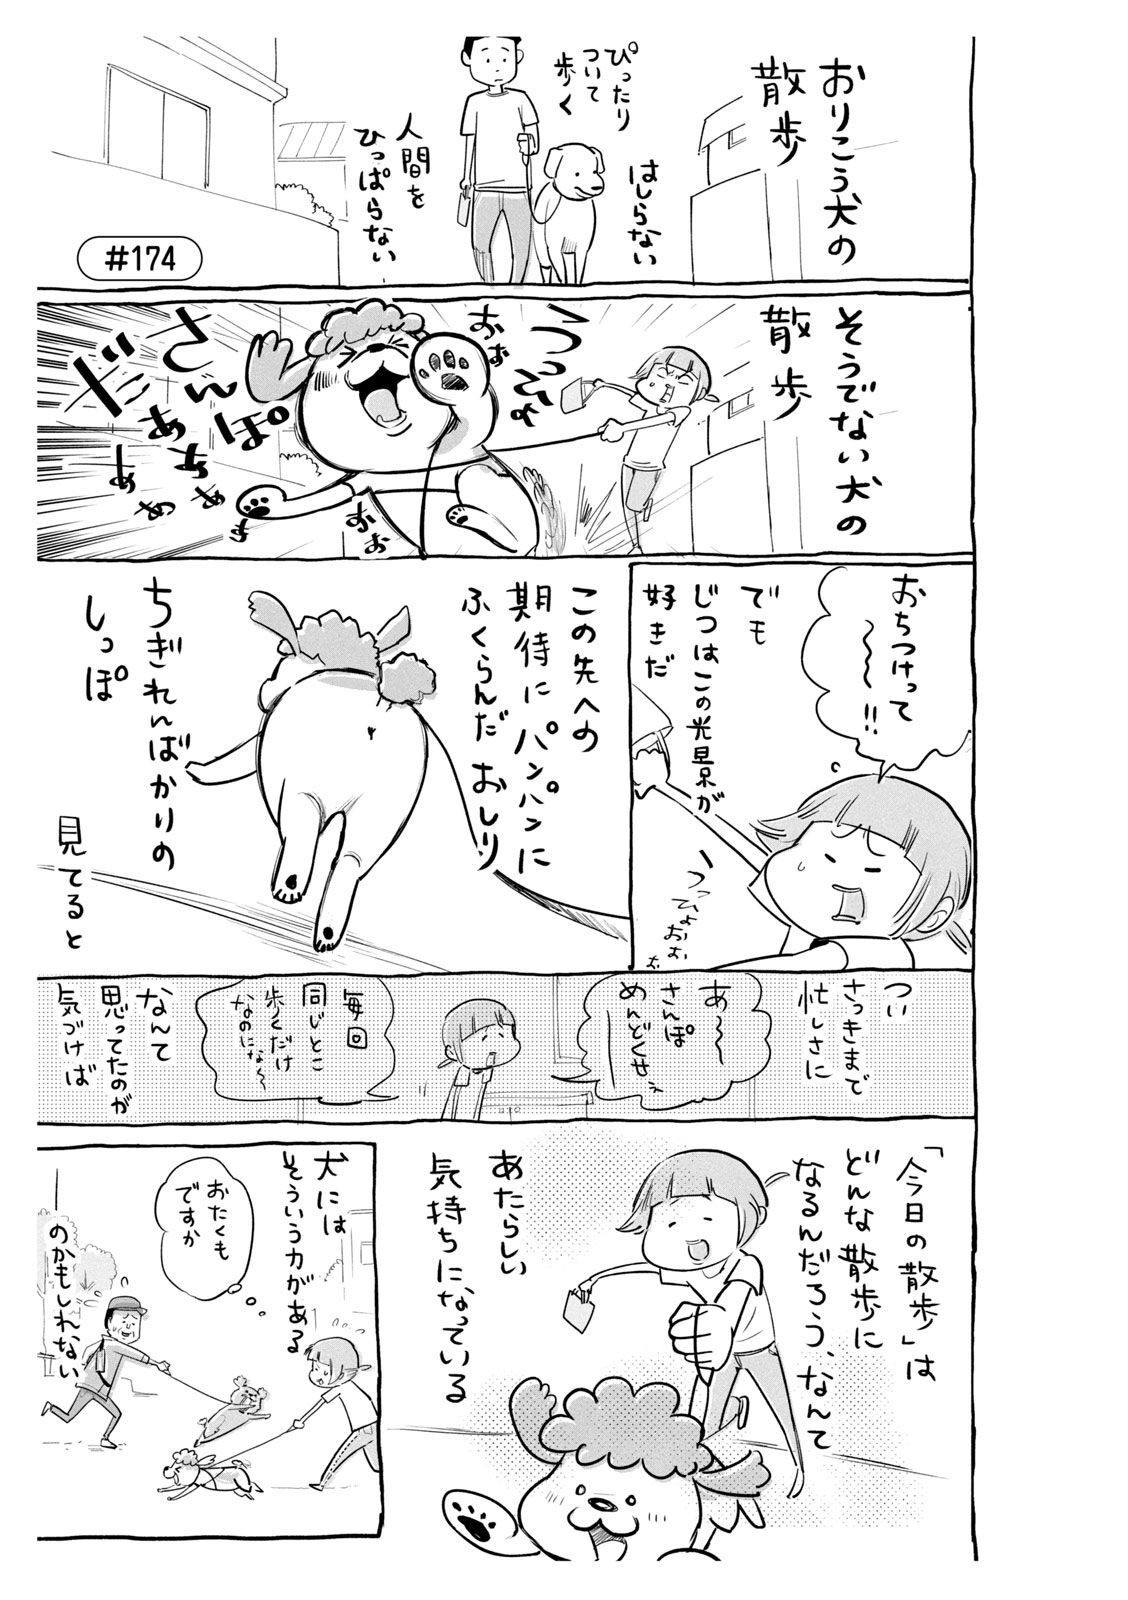 おりこう犬の
散歩
はしらない
ぴったり
ついて
歩く
人間を
ひっぱらない
#174
そうでない犬の
散歩
うっひょ
おぉ
おぉ
さんぽ
だ
あちゃ
ああ
ああ
おちつけって
〜〜!!
でも
じつはこの光景が
好きだ
うっひょおぉ
この先への
期待にパンパンに
ふくらんだおしり
ちぎれんばかりの
しっぽ
見てると
つい
さっきまで
忙しさに
あ〜〜
さんぽ
めんどくせぇ
毎回
同じとこ
歩くだけ
なのにな〜
なんて
思ってたのが
気づけば
「今日の散歩」は
どんな散歩に
なるんだろう、なんて
あたらしい
気持ちになっている
犬には
そういう力がある
おたくも
ですか
のかもしれない